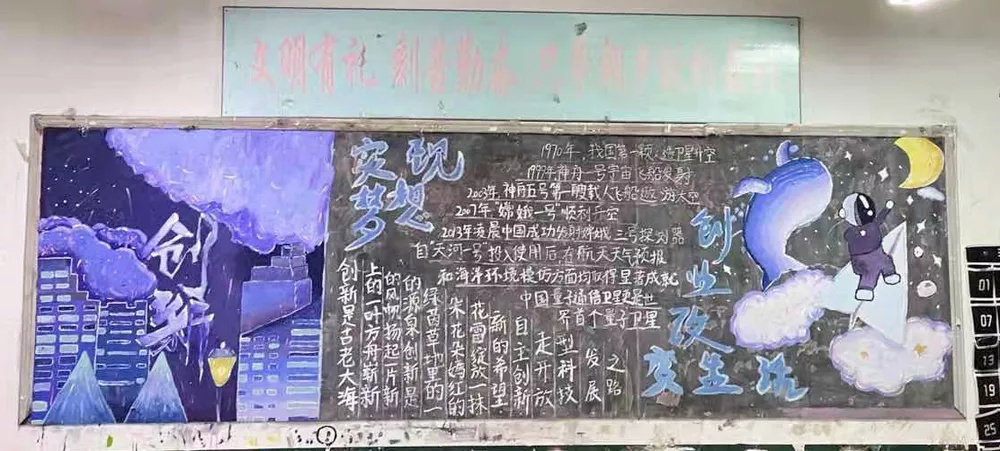 文明有礼 刻苦勤奋
创新
实现
梦想
1970年,我国第一颗人造卫星升空
1999年神舟一号宇宙飞船发射
2003年神舟五号第一艘载人飞船遨游太空
2007年嫦娥一号顺利升空
2013年凌晨中国成功发射嫦娥三号探测器
自天河一号投入使用后,在航天天气预报
和海洋环境模仿方面均取得显著成就
中国量子通信卫星是世
界首个量子卫星
创新是古老大海
上的一叶方舟崭新
的风帆扬起一片新
的源泉创新是
绿茵草地里的一
朵花朵嫣红的
花雪绽放一抹
新的希望
自主创新
走开放
型科技
发展
之路
创业改
变生活
01
07
13
19
25